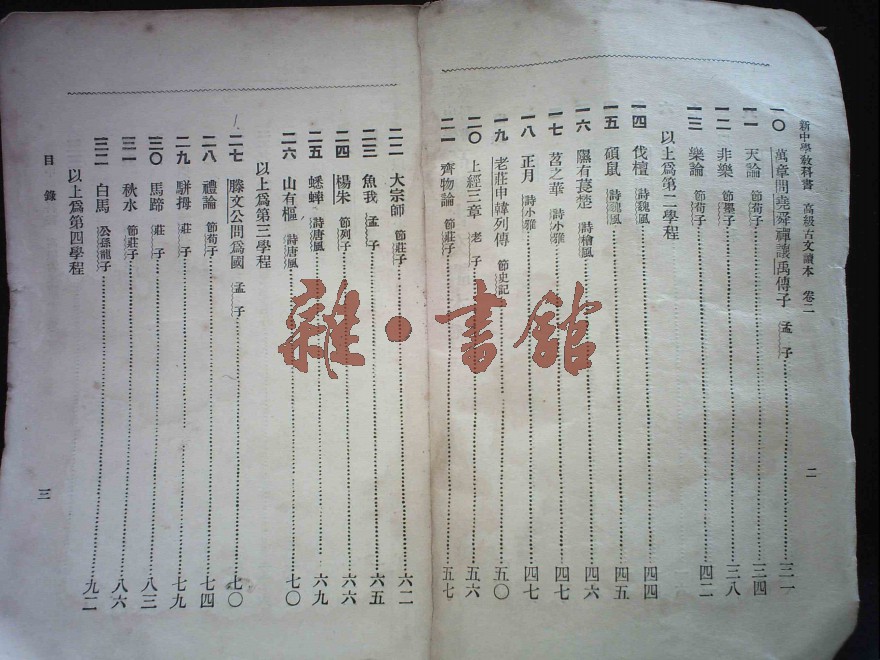 新中學教科書 高級古文讀本 卷二 二
一〇 萬章問堯舜禪讓禹傳子 孟子 三一
一一 天論 節荀子 三四
一二 非樂 節墨子 三八
一三 樂論 節荀子 四二
以上為第二學程
一四 伐檀 詩魏風 四四
一五 碩鼠 詩魏風 四五
一六 隰有萇楚 詩檜風 四六
一七 苕之華 詩小雅 四七
一八 正月 詩小雅 四七
一九 老莊申韓列傳 節史記 五〇
二〇 上經三章 老子 五六
二一 齊物論 節莊子 五七
二二 大宗師 節莊子 六二
二三 魚我 孟子 六五
二四 楊朱 節列子 六六
二五 蟋蟀 詩唐風 六九
二六 山有樞 詩唐風 七〇
以上為第三學程
二七 滕文公問為國 孟子 七〇
二八 禮論 節荀子 七四
二九 駢拇 莊子 七九
三〇 馬蹄 莊子 八三
三一 秋水 節莊子 八六
三二 白馬 公孫龍子 九二
以上為第四學程
目錄 三
雜·書館